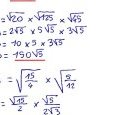 = √20 × √125 × √45
= 2√5 × 5√5 × 3√5
= 10 × 5 × 3√5
= 150√5
= √(15/4) × √(5/12)
= √15/2 × √5/2√3